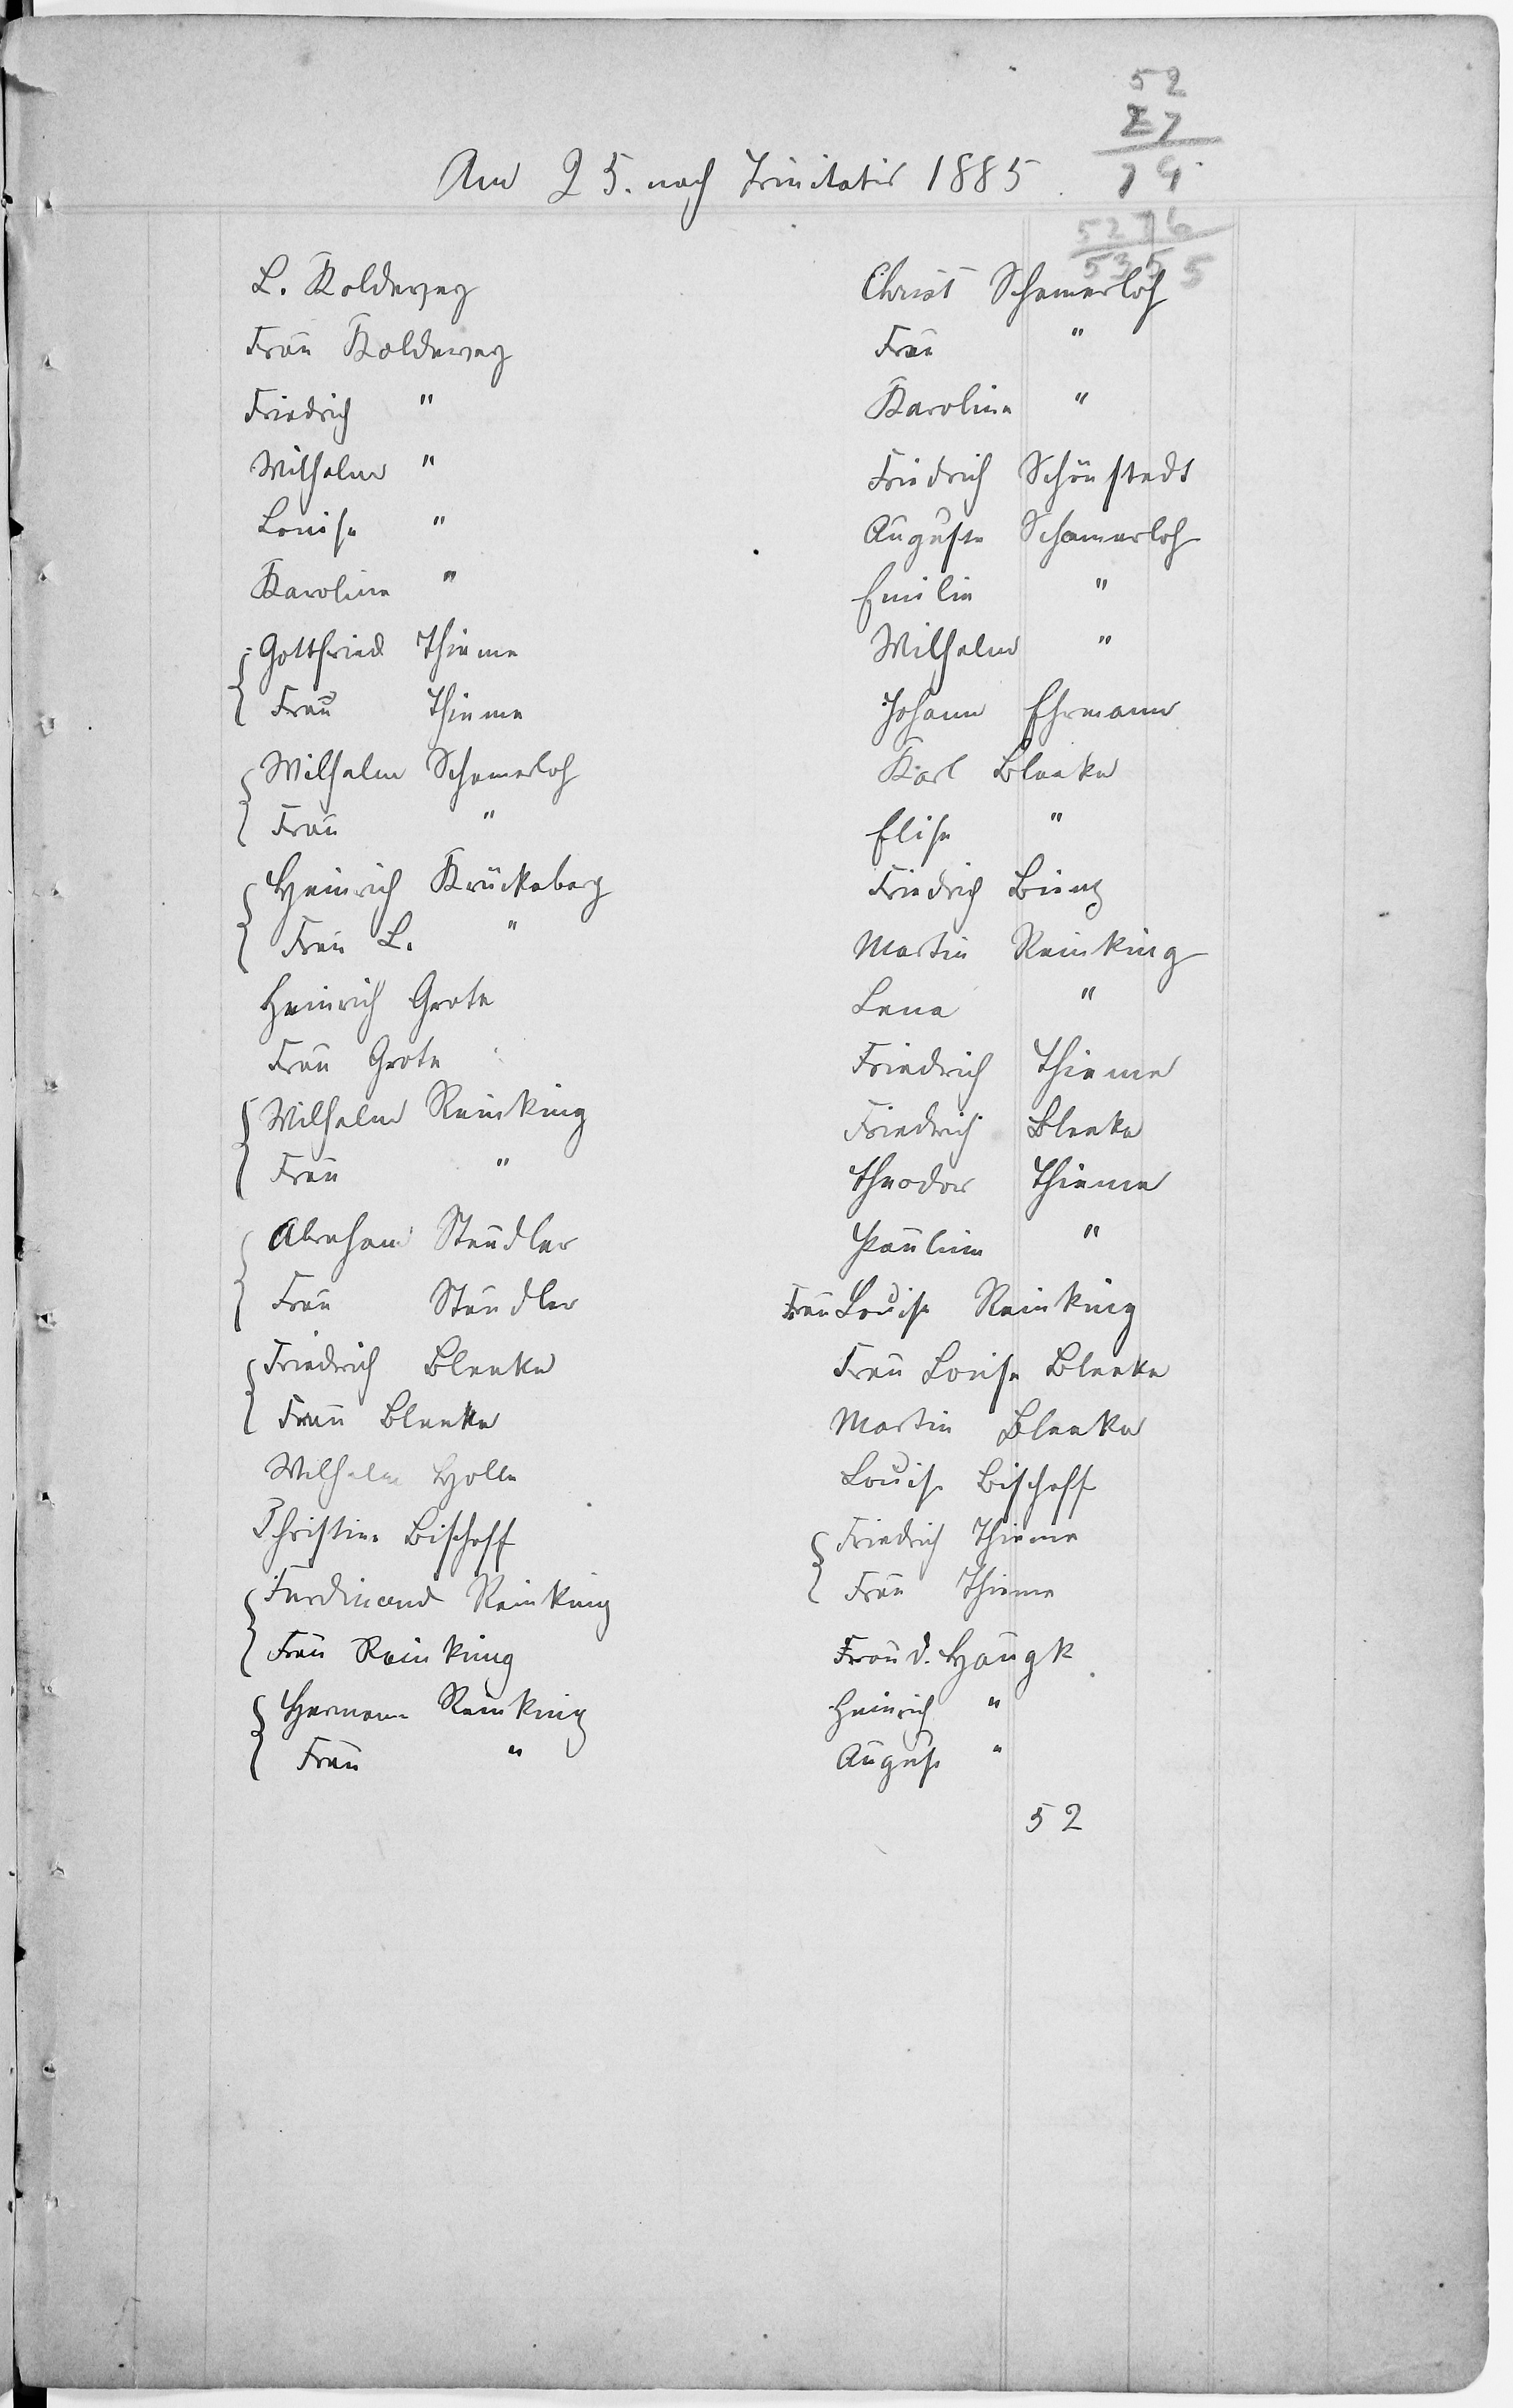 52
27
79
5276
5355
Am 25. nach Trinitatis 1885.
L. Koldewey
Frau Koldewey
Friedrich "
Wilhelm "
Louise "
Karoline "
Gottfried Thieme
Frau Thieme
Wilhelm Schamerloh
Frau "
Heinrich Krückeberg
Frau L. "
Heinrich Grote
Frau Grote
Wilhelm Reinking
Frau "
Abraham Steudler
Frau Steudler
Friedrich Bleeke
Frau Bleeke
Wilhelm Holle
Christine Bischoff
Ferdinand Reinking
Frau Reinking
Hermann Reinking
Frau "
Christ Schamerloh
Frau "
Karoline "
Friedrich Schönstedt
Auguste Schamerloh
Emilie "
Wilhelm "
Johann Ehrmann
Karl Bleeke
Elise "
Friedrich Bienz
Martin Reinking
Lena "
Friedrich Thieme
Friedrich Bleeke
Theodor Thieme
Pauline "
Frau Louise Reinking
Frau Louise Bleeke
Martin Bleeke
Louise Bischoff
Friedrich Thieme
Frau Thieme
Frau d. Haugk
Heinrich "
August "
52